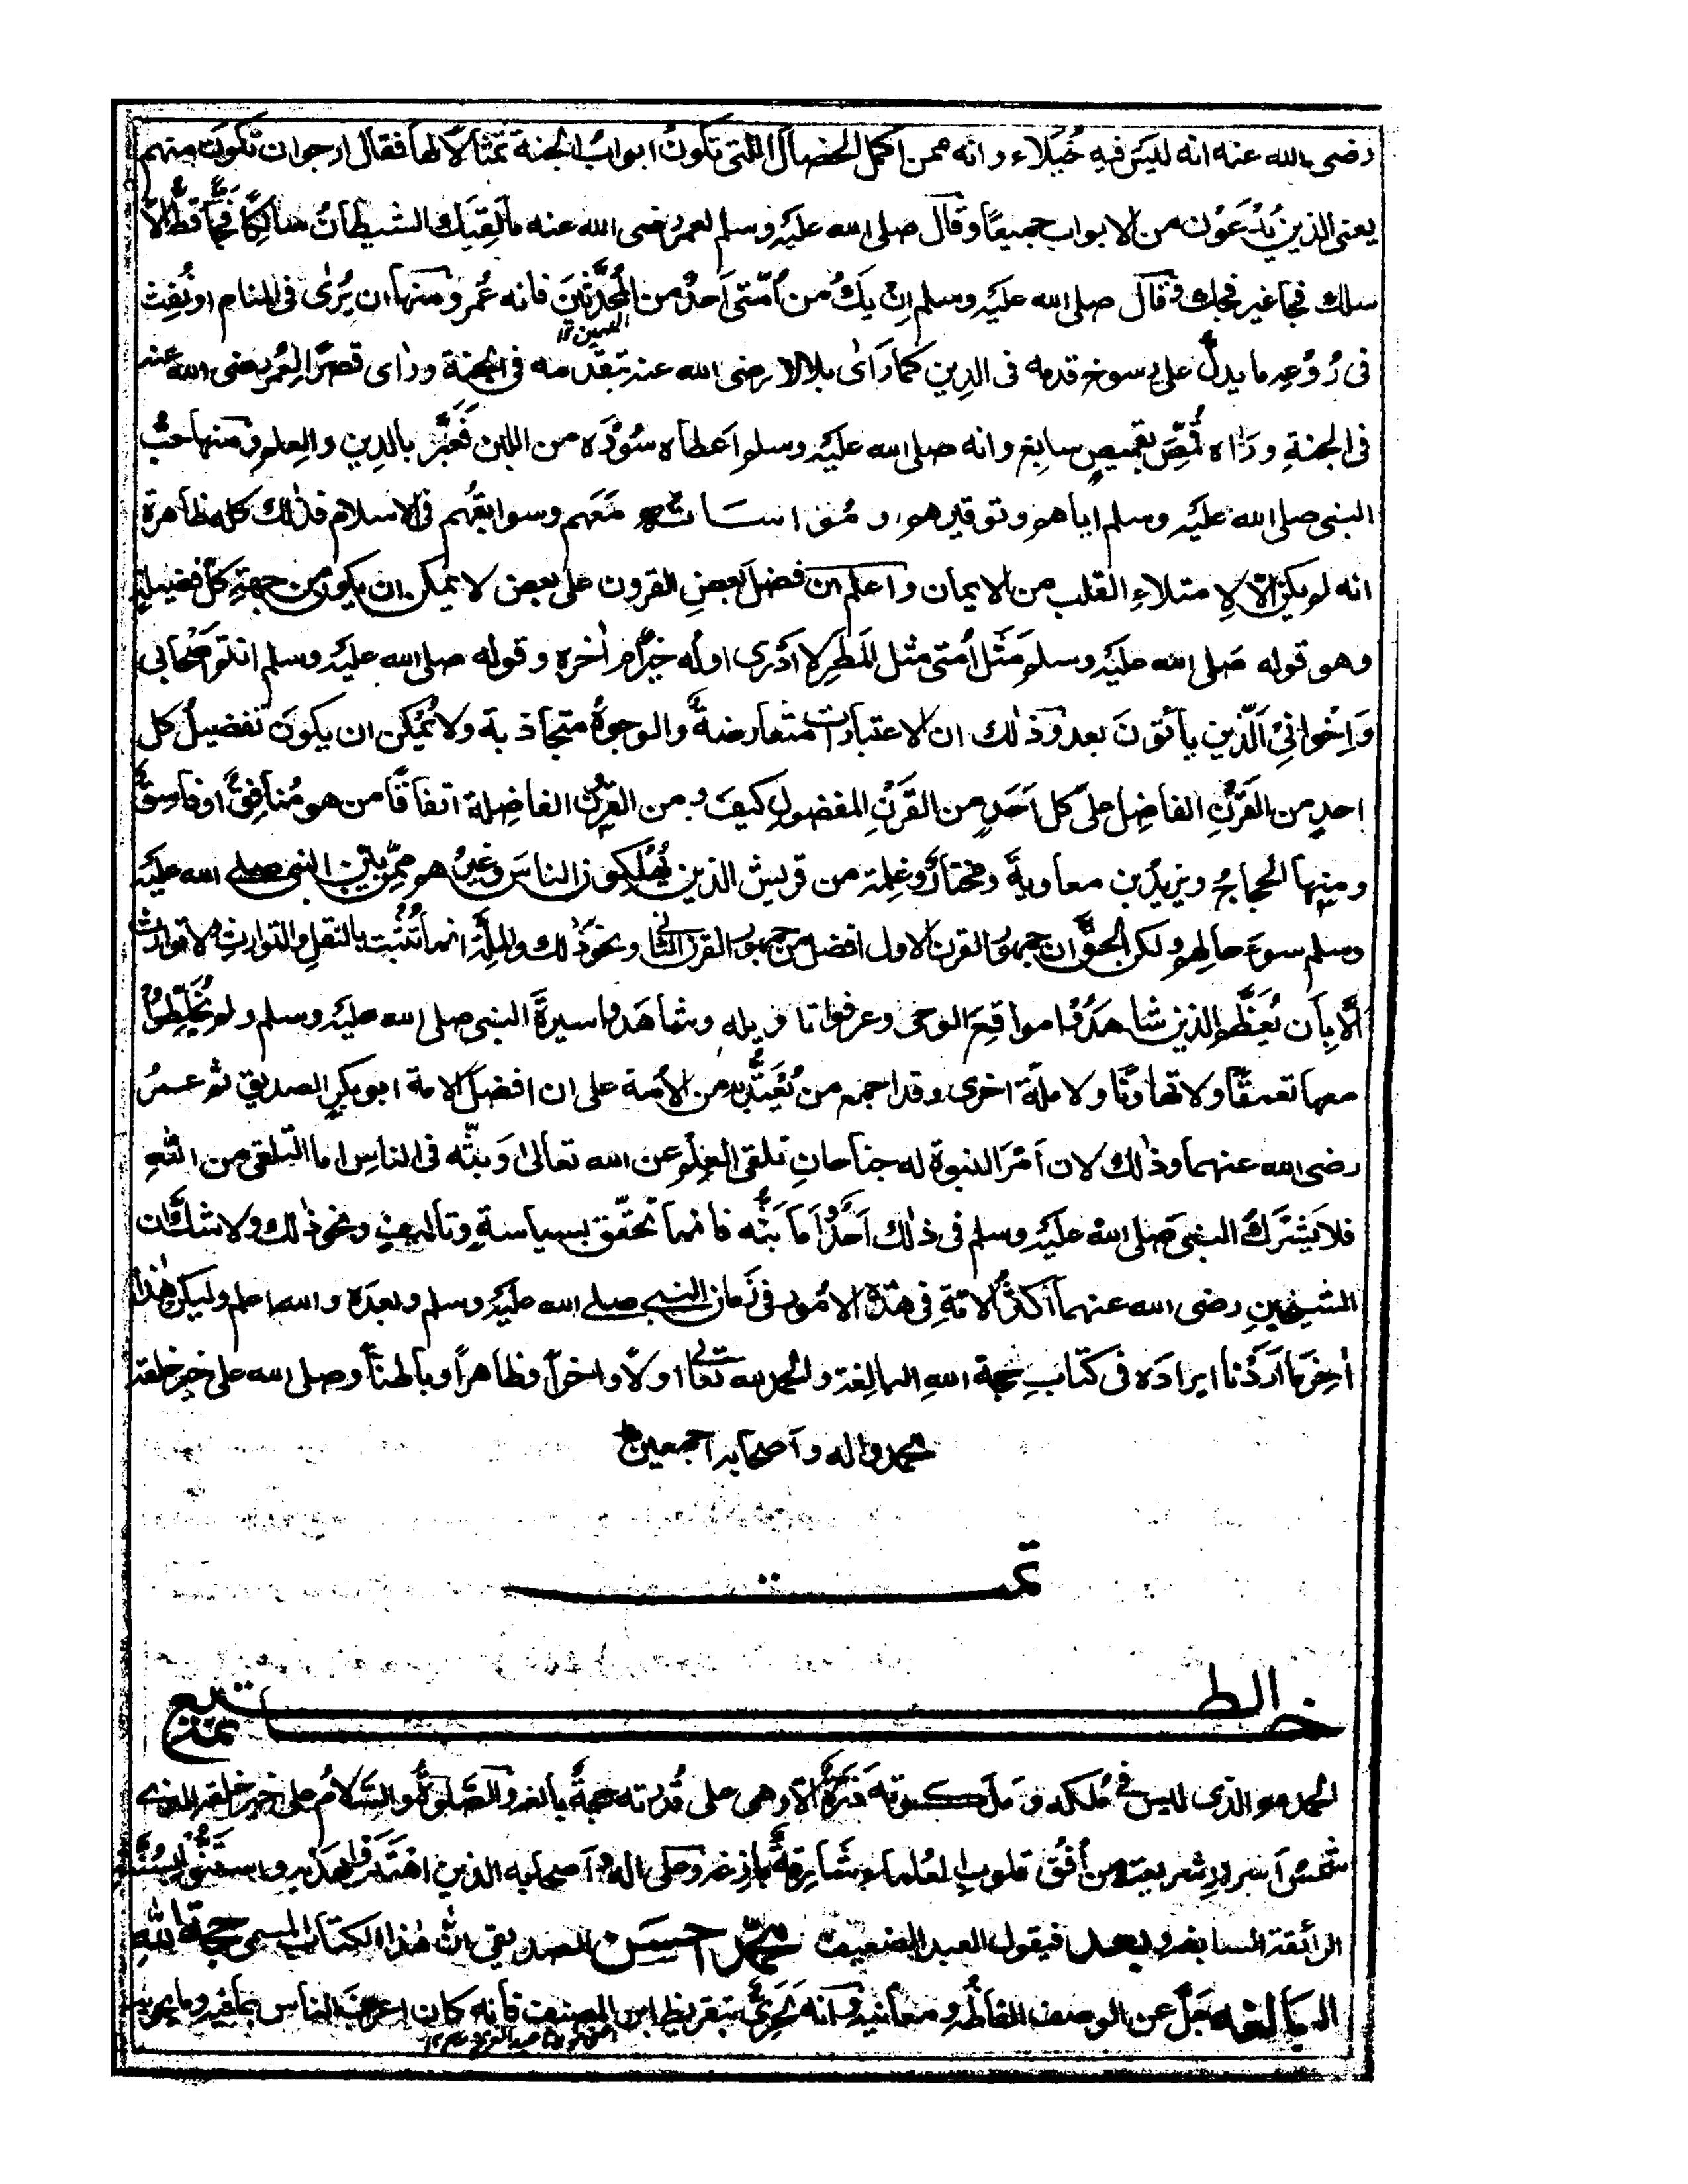 رضى الله عنه انه ليس فيه خُيَلاء وانه ممن اكمل الخصال اللتى تكونُ ابوابُ الجنة تمثالًا لها فقال ارجوان تكونَ منهم
يعنى الذين يُدْعَوْن من الابواب جميعًا وقال صلى الله عليه وسلم لعمر رضى الله عنه مالَقِيَك الشيطانُ سالكًا فجًّا قطُّ الّا
سلك فجا غير فجك وقال صلى الله عليه وسلم اِن يكُ من اُمّتى اَحدٌ من المُحدَّثين فانه عُمر ومنها ان يُرٰى فى المنام او نُفِث
فى رُوْعِه ما يدلُّ على رسوخ قدمه فى الدين كما رَاٰى بلالا رضى الله عنه يتقدمه فى الجنة وراى قصرًا لِعُمر رضى الله عنه
فى الجنةِ ورَاٰه قُمِّصَ بقميصٍ سابِغ وانه صلى الله عليه وسلم اَعطاه سُؤْرَه من اللبن فَعَبَّر بالدين والعِلم ومنها حبُّ
النبى صلى الله عليه وسلم اياهم وتوقيرهم ومواساته مَعَهم وسوابقُهم فى الاسلام فذلك كله ظاهرة
انه لم يكن الّا لامتلاءِ القلب من الايمان واعلم ان فضلَ بعضِ القرون على بعض لا يمكن ان يكونَ من جهةِ كل فضيلةٍ
وهو قوله صلى الله عليه وسلم مَثَل اُمتى مثل المَطَرِ لا اَدْرى اولُه خيرٌ ام اٰخره وقوله صلى الله عليه وسلم انتم اَصْحابى
وَاِخْوانِىْ الَّذِين يأتونَ بعد وذٰلك ان الاعتبارات متعارضةٌ والوجوهُ متجاذبة ولا يُمْكن ان يكونَ تفضيلُ كل
احدٍ من القَرْنِ الفاضِل على كل اَحَدٍ من القَرْنِ المفضولِ كيفَ ومن القرون الفاضِلة اتفاقًا من هو مُنافِقٌ او فاسِقٌ
ومنها الحجاجُ ويزيدُ بن معاويةَ ومختارٌ وغِلمة من قريش الذين يُهْلِكون الناسَ وغيرُهم ممن بيَّن النبى صلى الله عليه
وسلم سوءَ حالِهم ولكن الحقَّ ان جمهورَ القرن الاول افضل من جمهور القرن الثانى ونحوُ ذٰلك والمِلَّة انما تُثْبت بالنقل والتوارث ولا توارث
اِلّا بِاَن يُعَظَّم الذين شاهَدُوا مواقِعَ الوحى وعرفوا تاويله وشاهَدوا سيرةَ النبى صلى الله عليه وسلم ولم يُخلِطُوا
معها تعمقًا ولا تهاوُنًا ولا ملّة اخرى وقد اجمع من يُعْتَدُّ به من الاُمة على ان افضلَ الامة ابو بكرٍ الصديق ثم عمرُ
رضى الله عنهما وذٰلك لان اَمْرَ النبوة له جناحانِ تلقى العِلم عن الله تعالى وَبثُّه فى الناسِ اما التلقى من اللّٰهِ
فلا يَشْرَكُ النبىَ صلى الله عليه وسلم فى ذٰلك اَحَدٌ واَمَّا بَثُّه فانما تحقَّق بسياسةٍ وتاليفٍ ونحو ذٰلك ولا شك ان
الشيخينِ رضى الله عنهما اكثرُ الامّةِ فى هٰذه الامُور فى زَمان النبى صلى الله عليه وسلم وبعدَه والله اعلم وليكن هٰذا
اٰخِرَ ما اَرَدْنا ايرادَه فى كتابِ حجة اللهِ البالِغة والحمد لله تعالى اولًا واٰخرًا وظاهرًا وباطنًا وصلى الله على خير خلقه
محمد واٰله واَصحابه اجمعين
تمت
خاتمة الطبع
الحمد لله الذى ليس فى مُلكله ومَلكوته ذَرَةٌ الّا وهى على قُدرته حجةٌ بالغه والصَّلوةُ والسَّلامُ على خير خلقه الذى
شمسُ اَسرارِ شريعته من اُفُق قلوبِ العُلماءِ شَارِقةٌ بازِغه وعلى اٰله واَصحابه الذين اقتدَوا بهَدْيه واستنُّوا بسُنَّته
الرائقة السابغه وبعد فيقول العبد الضعيف محمد احسن الصديقى انّ هٰذا الكتاب المسمى حجة اللّٰه
البالغه جَلَّ عن الوصف الفاظُه ومعانيه وانه حَرِىٌّ بتقريظ ابن المصنف فانه كان اعرفَ الناس بما فيه وما يحويه